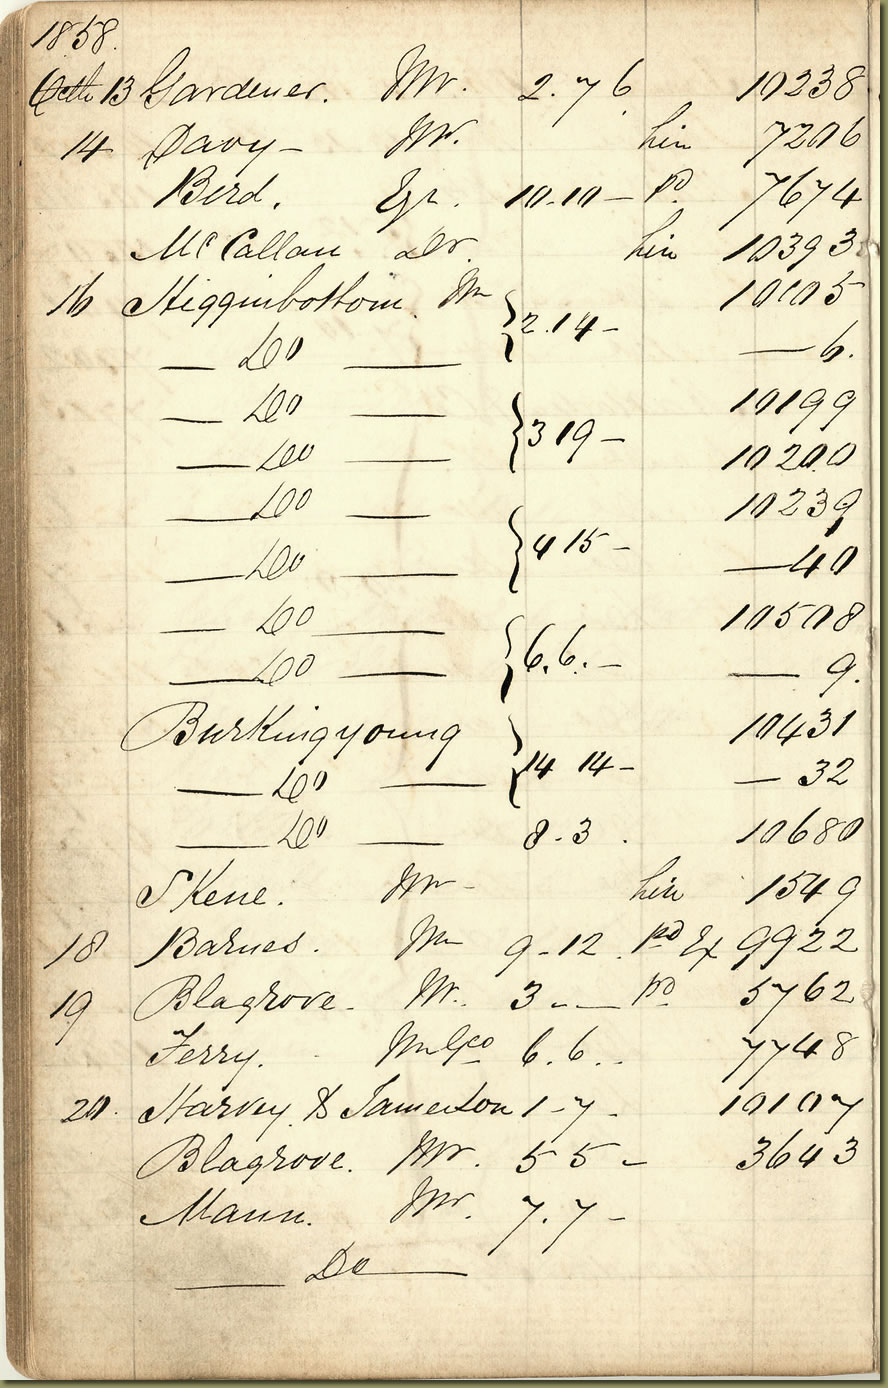 1858.
Octb 13 Gardener. Mr. 2.7 6 10238
14 Davy - Mr. lin 7206
Bird. Eqr. 10.10 - pd. 7674
McCallan Dr. lin 10393
16 Higginbottom. Mr 10105
— Do — } 2.14 - — 6.
— Do — 10199
— Do — } 3 19 - 10200
— Do — 10239
— Do — } 4 15 - — 40
— Do — 10508
— Do — } 6.6. - — 9.
Burkingyoung 10431
— Do — } 14 14 - — 32
— Do — 8.3 . 10680
Skene. Mr - lin 1549
18 Barnes. Mr 9-12 . pd Ex 9922
19 Blagrove. Mr. 3 - — pd 5762
Ferry. Mr Geo 6.6.. 7748
20. Harvey & Jamerton 1-7. 10107
Blagrove. Mr. 5 5 - 3643
Mann. Mr. 7.7 -
— Do —